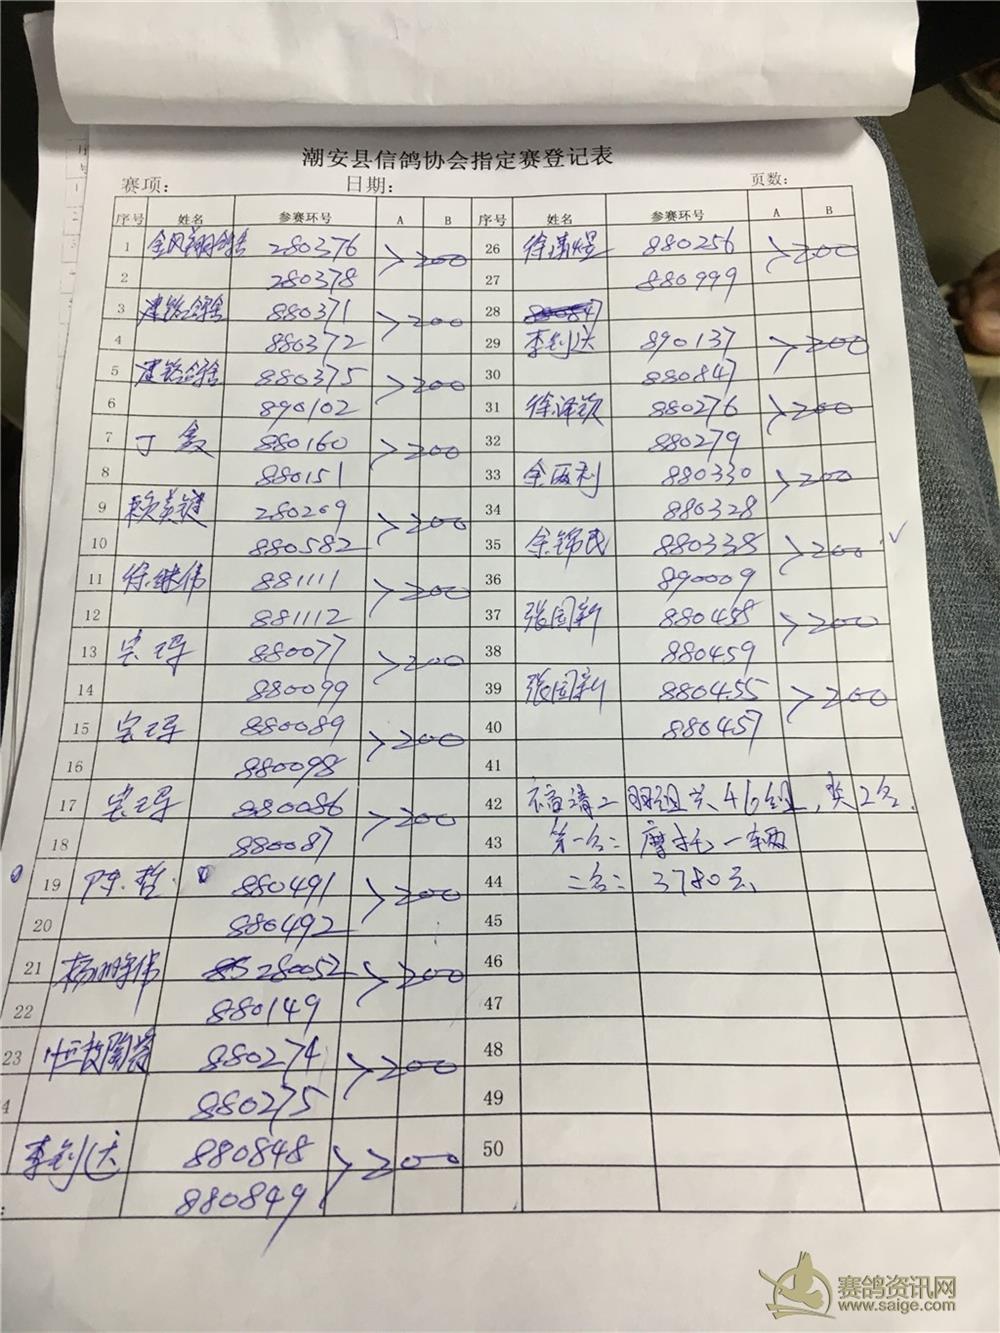 潮安县信鸽协会指定赛登记表
赛项： 日期： 页数：
序号 姓名 参赛环号 A B 序号 姓名 参赛环号 A B
1 金凤翔鸽舍 280376 >200 26 徐 880256 >200
2 280378 27 880999
3 建铭鸽舍 880371 >200 28
4 880372 29 李剑达 890137 >200
5 建铭鸽舍 880375 >200 30 880847
6 890102 31 徐泽钦 880276 >200
7 丁 880160 >200 32 880279
8 880151 33 余两利 880330 >200
9 赖英键 280209 >200 34 880328
10 880582 35 余锦民 880338 >200 ✓
11 徐继伟 881111 >200 36 890009
12 881112 37 张国新 880458 >200
13 880077 >200 38 880459
14 880099 39 张国新 880455 >200
15 880089 >200 40 880457
16 880098 41
17 880086 >200 42 福清二羽组共46组，奖2名.
18 880087 43 第一名：摩托一辆
19 陈哲 880491 >200 44 二名：3780元
20 880492 45
21 杨鹏伟 280052 >200 46
22 880149 47
23 恒 陶瓷 880274 >200 48
4 880275 49
李剑达 880848 >200 50
880849
赛鸽资讯网
www.saige.com